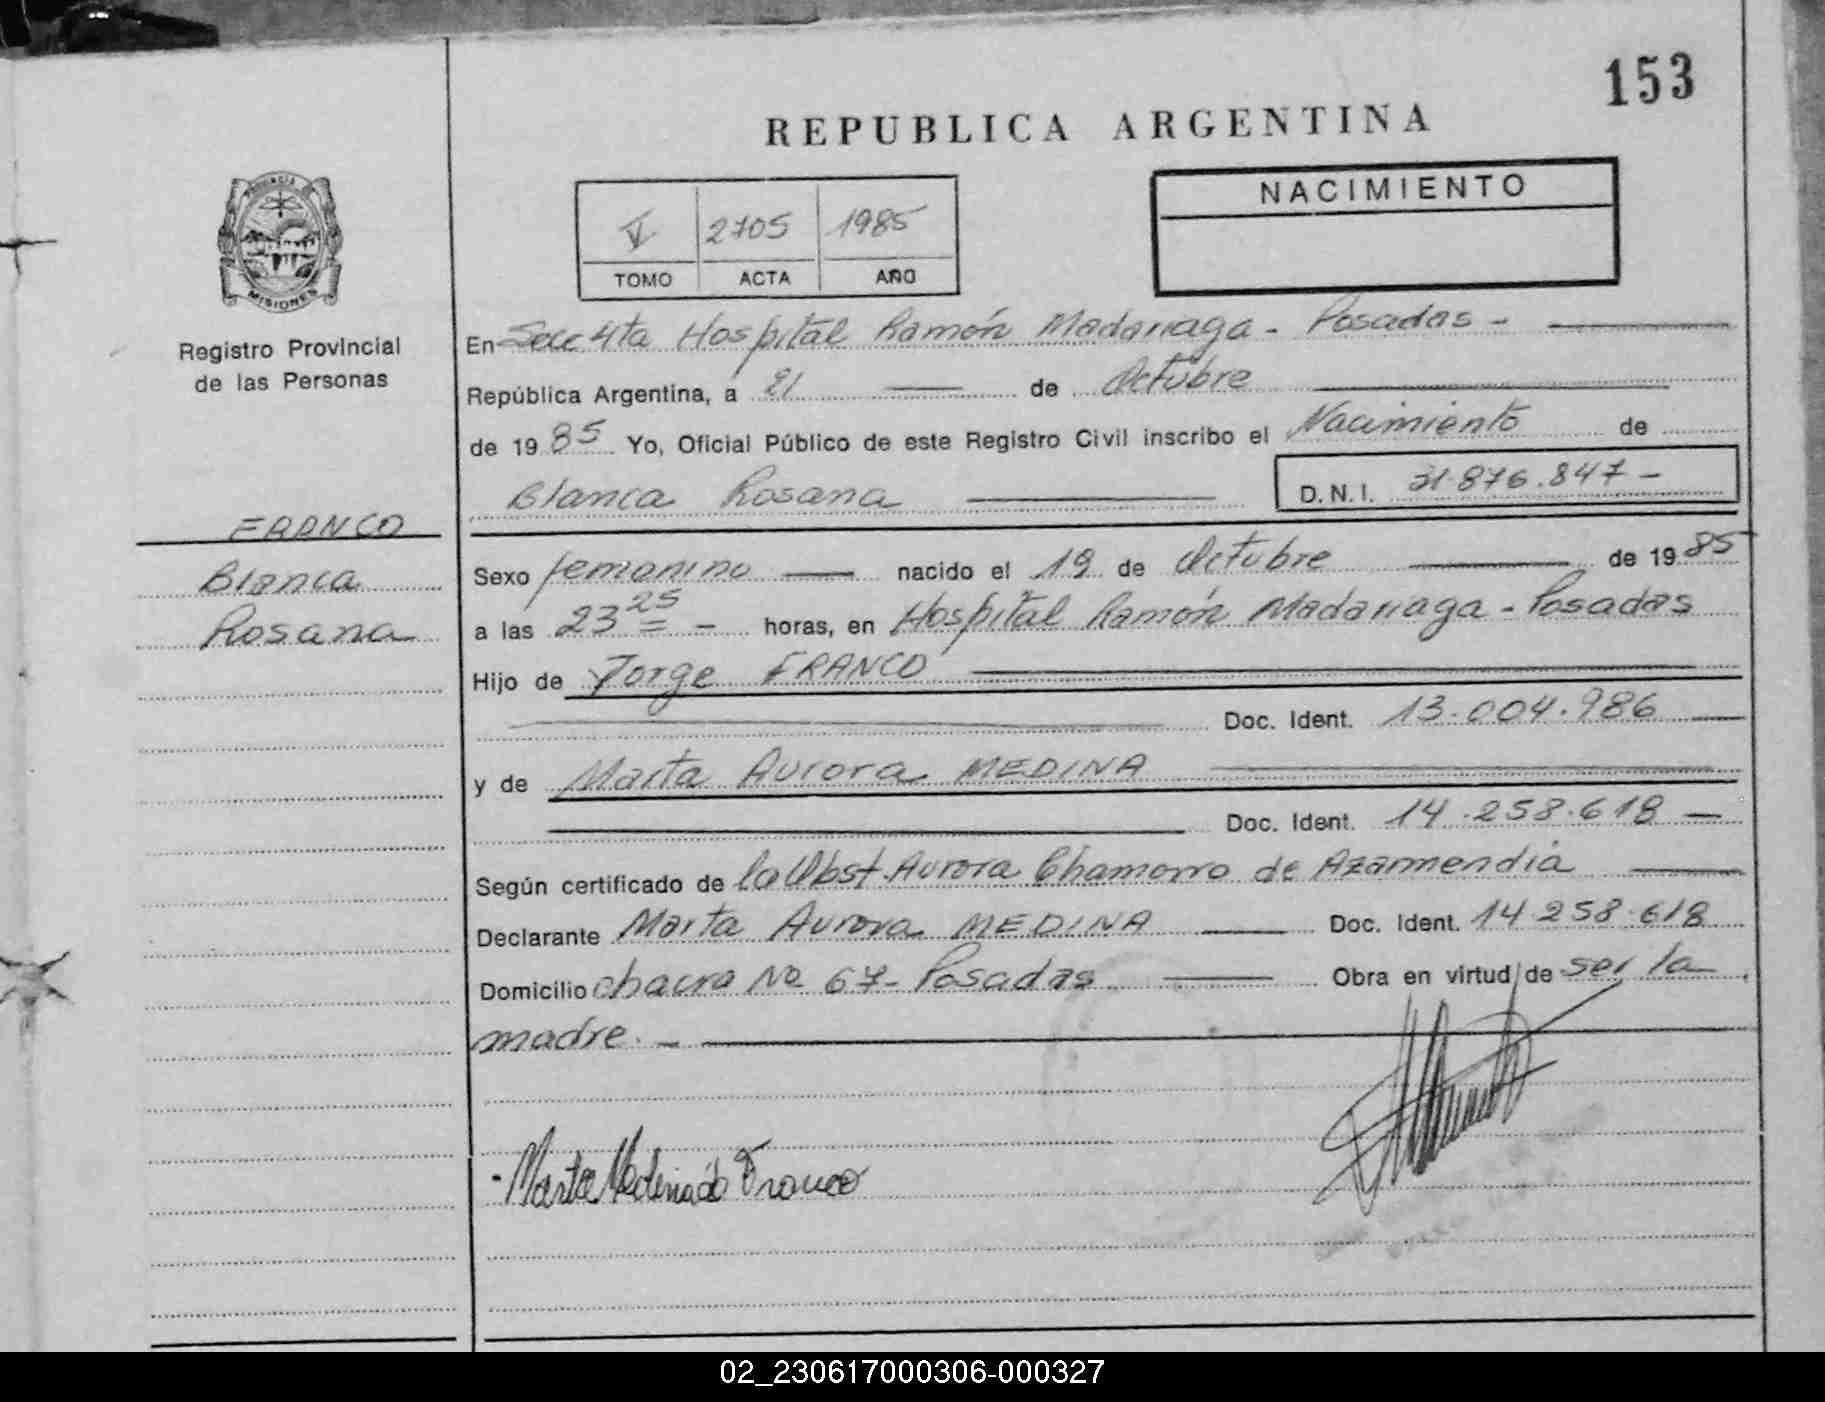 153
REPUBLICA ARGENTINA
V 2705 1985
TOMO ACTA AÑO
NACIMIENTO
PROVINCIA DE
MISIONES
Registro Provincial
de las Personas
FRANCO
Blanca
Rosana
En Secc 4ta Hospital Ramón Madariaga - Posadas -
República Argentina, a 21 de Octubre
de 1985 Yo, Oficial Público de este Registro Civil inscribo el Nacimiento de
Blanca Rosana D.N.I. 31.876.847-
Sexo femenino nacido el 19 de Octubre de 1985
a las 23 25 - horas, en Hospital Ramón Madariaga - Posadas
Hijo de Jorge FRANCO
Doc. Ident. 13.004.986
y de Marta Aurora MEDINA
Doc. Ident. 14.258.618 -
Según certificado de la Obst. Aurora Chamorro de Azarmendia
Declarante Marta Aurora MEDINA Doc. Ident. 14.258.618
Domicilio chacra No 67- Posadas Obra en virtud de ser la
madre. -
Marta Medina de Franco
02_230617000306-000327